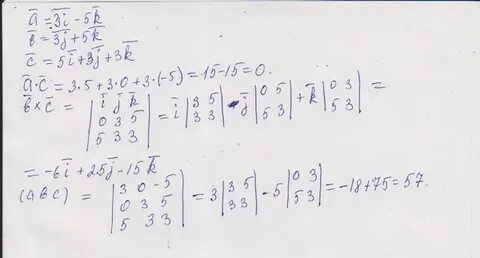 a̅ = 3i̅ - 5k̅
b̅ = 3j̅ + 5k̅
c̅ = 5i̅ + 3j̅ + 3k̅
a̅·c̅ = 3·5 + 3·0 + 3·(-5) = 15 - 15 = 0.
b̅ × c̅ = | i̅ j̅ k̅ ; 0 3 5 ; 5 3 3 | = i̅ | 3 5 ; 3 3 | - j̅ | 0 5 ; 5 3 | + k̅ | 0 3 ; 5 3 | =
= -6i̅ + 25j̅ - 15k̅
(ABC) = | 3 0 -5 ; 0 3 5 ; 5 3 3 | = 3 | 3 5 ; 3 3 | - 5 | 0 3 ; 5 3 | = -18 + 75 = 57.